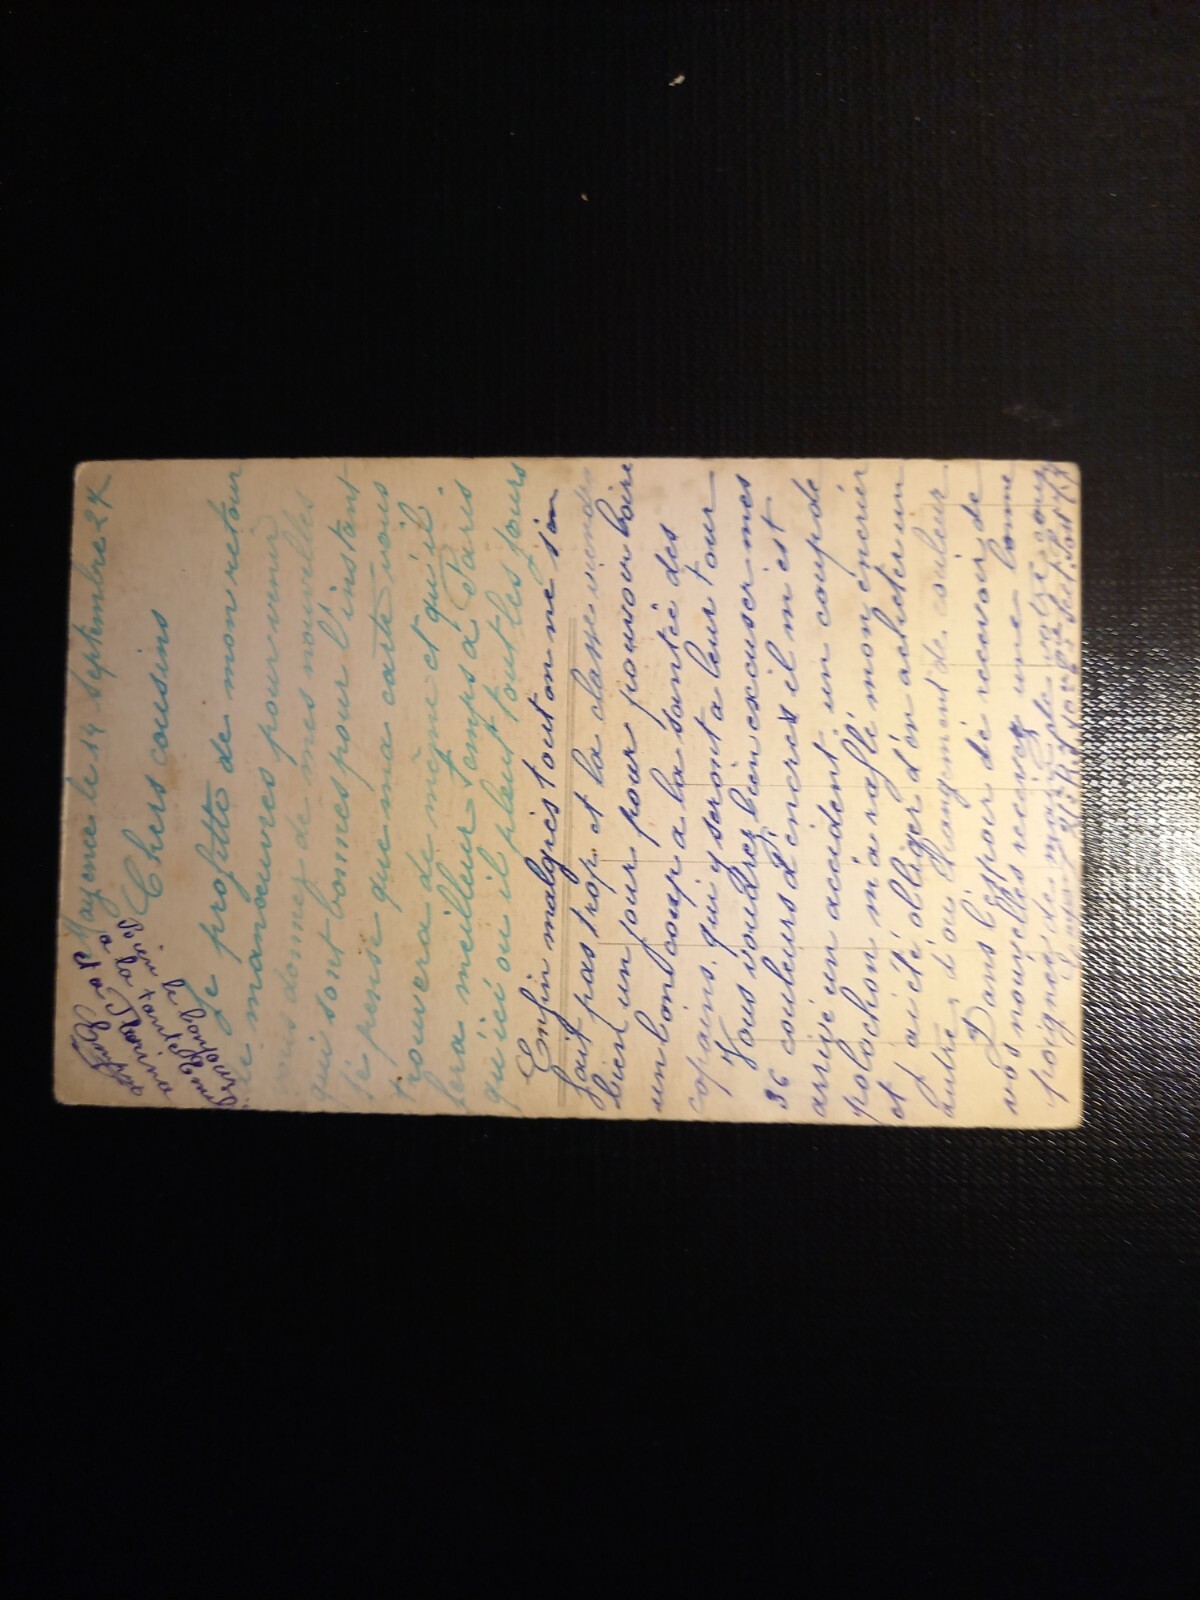 Mayence le 14 Septembre 24
Chers cousins
Je profitte de mon retour
de manoeuvres pour venir
vous donnez de mes nouvelles
qui sont bonnes pour l'instant
Je pense que ma carte vous
trouvera de même et qu'il
fera meilleur temps à Paris
qu'ici ou il pleut tout les jours
Enfin malgres tout on ne s'en
fait pas trop et la classe viendra
bien un jour pour pouvoir boire
un bon coup a la santée des
copains, qui y seront a leur tour
Vous voudrez bien excuser mes
36 couleurs d'encres il m'est
arrivé un accident, un coup de
polochon m'a raflé mon encrier
et j'ai été obliger d'en acheter un
autre d'ou changement de couleur
Dans l'espoir de recevoir de
vos nouvelles recevez une bonne
poignée de main de votre cousin